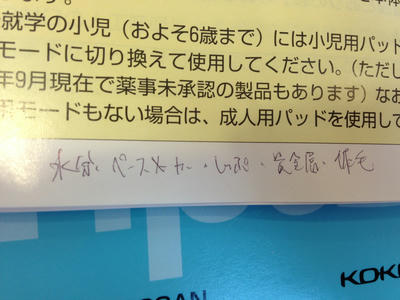 就学の小児（およそ6歳まで）には小児用パッド
モードに切り換えて使用してください。（ただし
年9月現在で薬事未承認の製品もあります）なお
モードもない場合は、成人用パッドを使用して
水分・ペースメーカー・しっぷ・貴金属・体毛
KOKU
SCAN